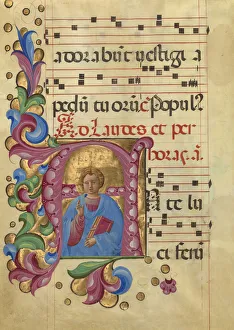 adorabūt vestigi a
pedū tuorūc Popul?
Ad Laudes et per
horas. ā.
Ante lu
ci ferū